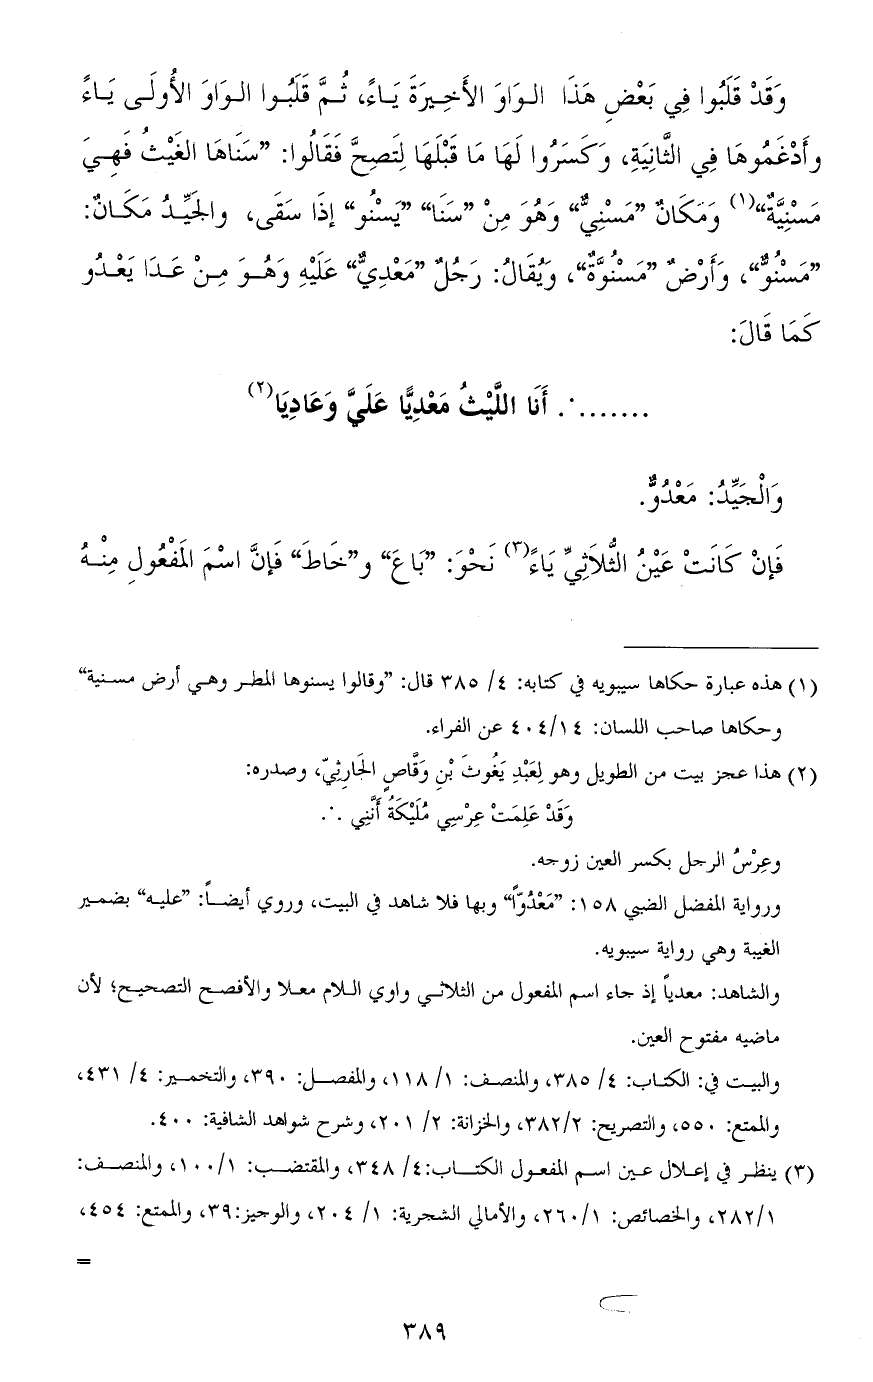 وَقَدْ قَلَبُوا فِي بَعْضِ هَذَا الوَاوَ الأَخِيرَةَ يَاءً، ثُمَّ قَلَبُوا الوَاوَ الأُولَى يَاءً
وأَدْغَمُوهَا فِي الثَّانِيَةِ، وَكَسَرُوا لَهَا مَا قَبْلَهَا لِتَصِحَّ فَقَالُوا: "سَنَاهَا الغَيْثُ فَهِيَ
مَسْنِيَّةٌ"(١) وَمَكَانٌ "مَسْنِيٌّ" وَهُوَ مِنْ "سَنَا" "يَسْنُو" إذَا سَقَى، والجَيِّدُ مَكَانٌ:
"مَسْنُوٌّ"، وَأَرْضٌ "مَسْنُوَّةٌ"، وَيُقَالُ: رَجُلٌ "مَعْدِيٌّ" عَلَيْهِ وَهُوَ مِنْ عَدَا يَعْدُو
كَمَا قَالَ:
....... ∴ أَنَا اللَّيْثُ مَعْدِيًّا عَلَيَّ وَعَادِيَا(٢)
وَالْجَيِّدُ: مَعْدُوٌّ.
فَإنْ كَانَتْ عَيْنُ الثُّلاَثِيِّ يَاءً(٣) نَحْوَ: "بَاعَ" و"خَاطَ" فَإنَّ اسْمَ المَفْعُولِ مِنْهُ
(١) هذه عبارة حكاها سيبويه في كتابه: ٤/ ٣٨٥ قال: "وقالوا يسنوها المطر وهي أرض مسنية"
وحكاها صاحب اللسان: ٤٠٤/١٤ عن الفراء.
(٢) هذا عجز بيت من الطويل وهو لِعَبْدِ يَغُوثَ بْنِ وَقَّاصٍ الحَارِثِيّ، وصدره:
وَقَدْ عَلِمَتْ عِرْسِي مُلَيْكَةُ أَنَّنِي ∴
وعِرْسُ الرجل بكسر العين زوجه.
ورواية المفضل الضبي ١٥٨: "مَعْدُوّاً" وبها فلا شاهد في البيت، وروي أيضاً: "عليه" بضمير
الغيبة وهي رواية سيبويه.
والشاهد: معدياً إذ جاء اسم المفعول من الثلاثي واوي اللام معلا والأفصح التصحيح؛ لأن
ماضيه مفتوح العين.
والبيت في: الكتاب: ٤/ ٣٨٥، والمنصف: ١/ ١١٨، والمفصل: ٣٩٠، والتخمير: ٤/ ٤٣١،
والممتع: ٥٥٠، والتصريح: ٣٨٢/٢، والخزانة: ٢/ ٢٠١، وشرح شواهد الشافية: ٤٠٠.
(٣) ينظر في إعلال عين اسم المفعول الكتاب:٤/ ٣٤٨، والمقتضب: ١٠٠/١، والمنصف:
٢٨٢/١، والخصائص: ٢٦٠/١، والأمالي الشجرية: ١/ ٢٠٤، والوجيز:٣٩، والممتع: ٤٥٤،
=
٣٨٩